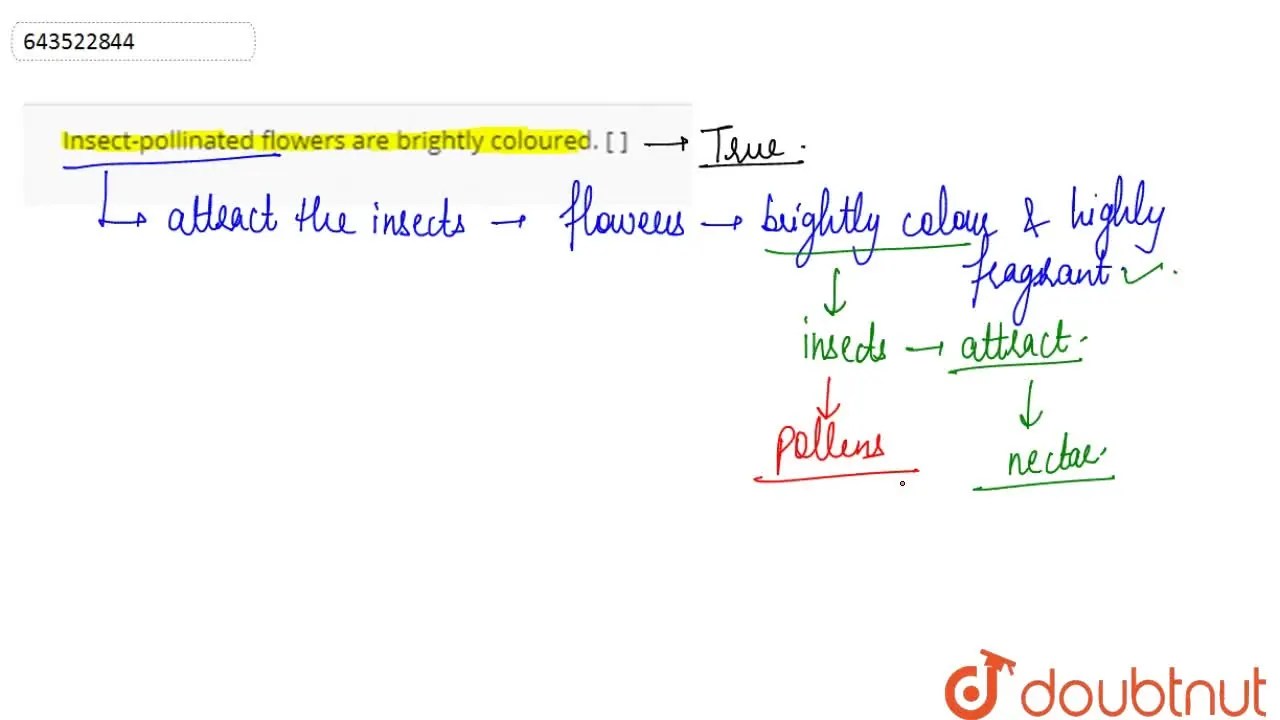 643522844
Insect-pollinated flowers are brightly coloured. [ ] → True.
↳ attract the insects → flowers → brightly colour & highly
fragrant ✓.
↓
insects → attract.
↓ ↓
pollens nectar.
doubtnut